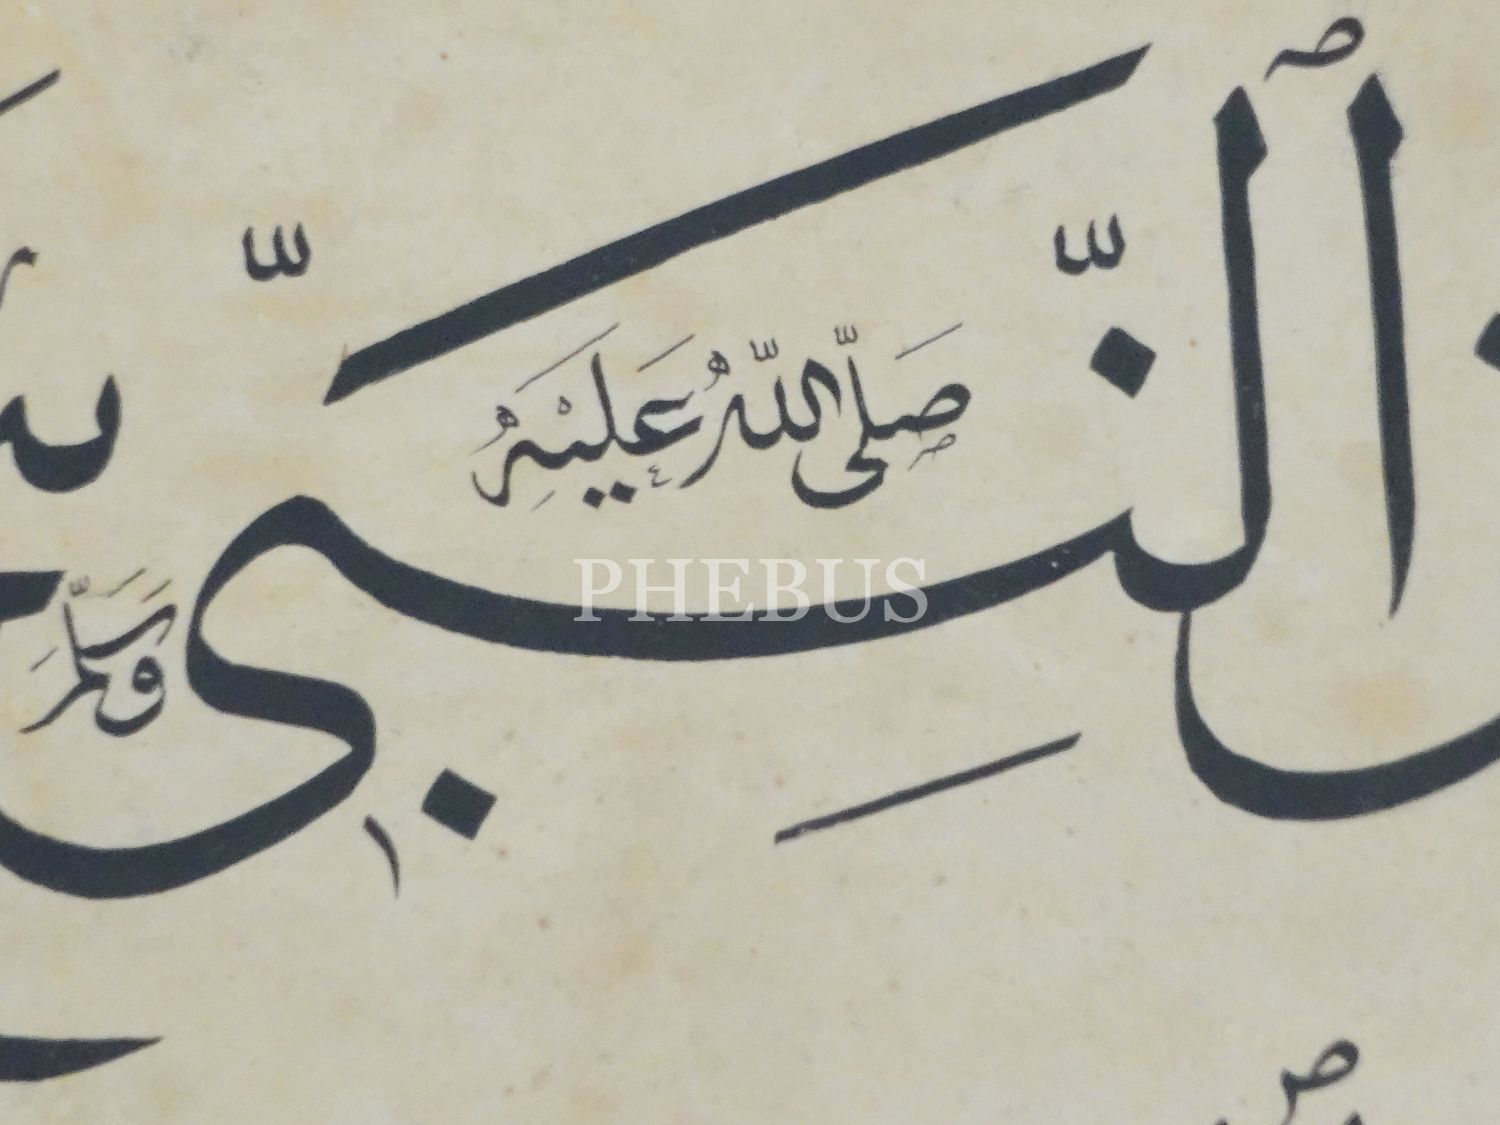 النَّبِيِّ
صَلَّى اللّٰهُ عَلَيْهِ
وَسَلَّمَ
PHEBUS